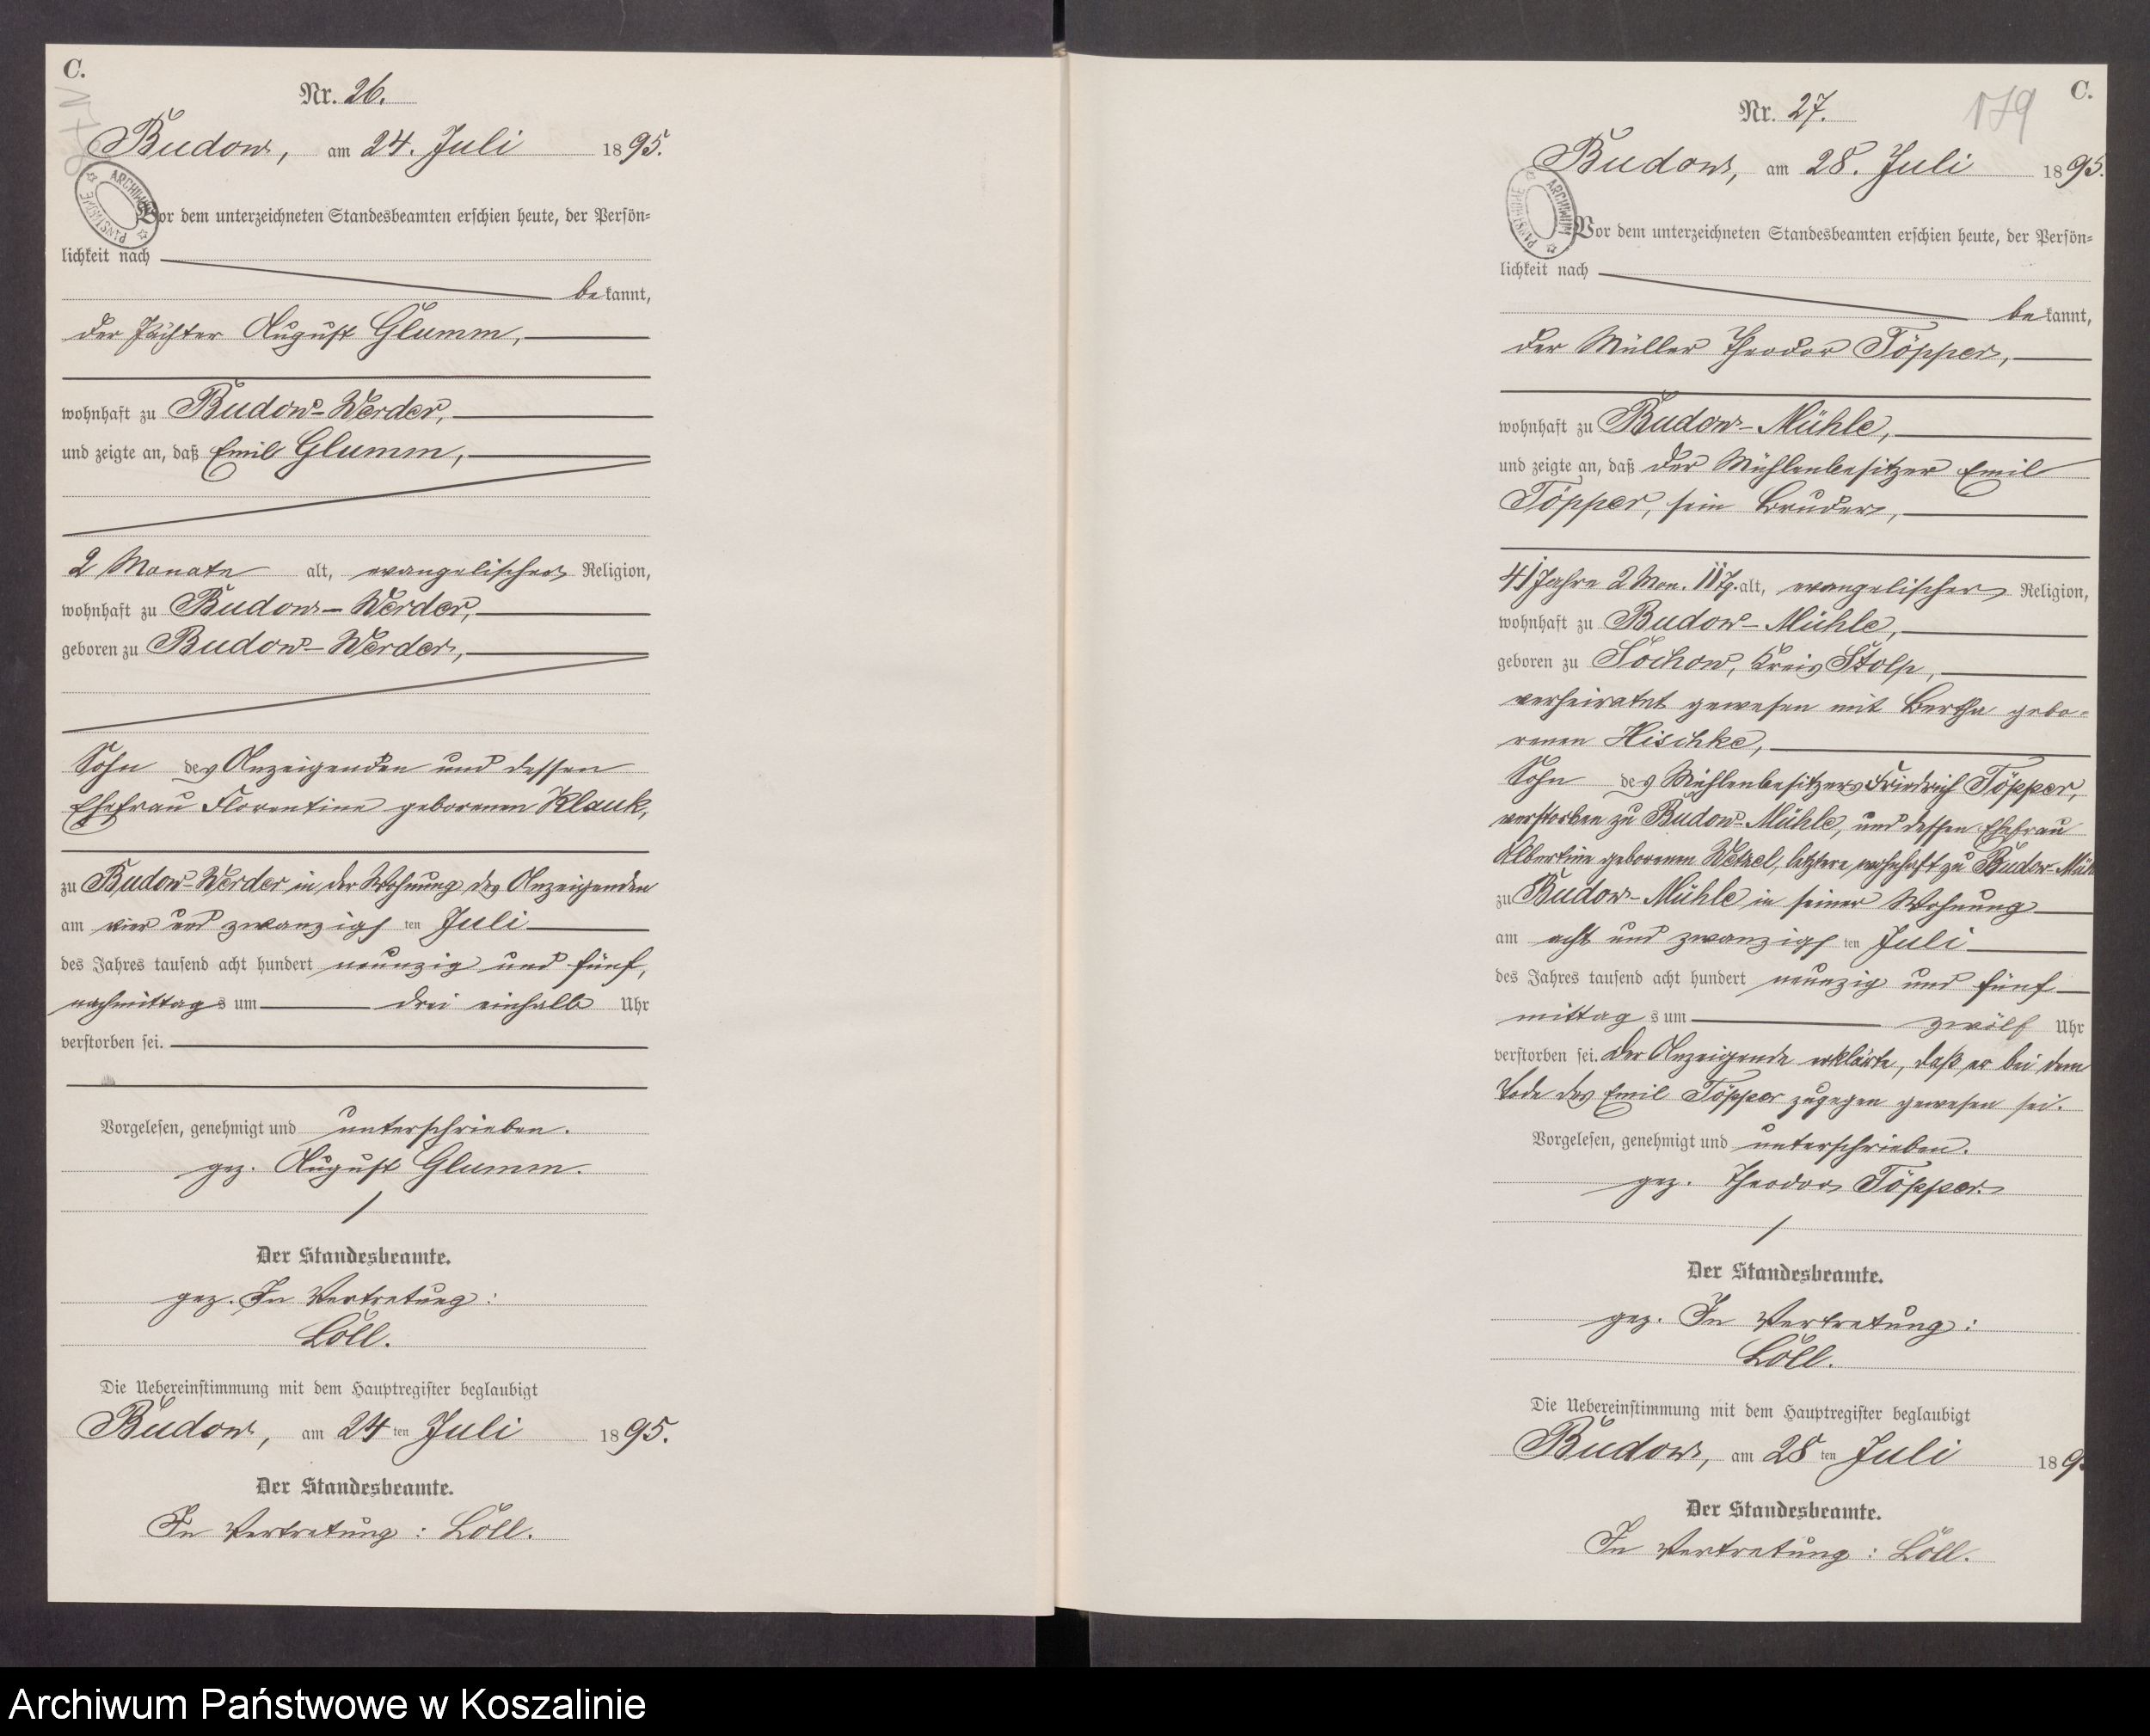 C.
Nr. 26.
Budow, am 24. Juli 1895.
ARCHIWUM PAŃSTWOWE
Vor dem unterzeichneten Standesbeamten erschien heute, der Persön=
lichkeit nach
bekannt,
der Pächter August Glumm,
wohnhaft zu Budow-Werder,
und zeigte an, daß Emil Glumm,
2 Monate alt, evangelischer Religion,
wohnhaft zu Budow-Werder,
geboren zu Budow-Werder,
Sohn des Anzeigenden und dessen
Ehefrau Florentine geborenen Klauk,
zu Budow-Werder in der Wohnung des Anzeigenden
am vier und zwanzigsten Juli
des Jahres tausend acht hundert neunzig und fünf,
nachmittags um drei einhalb Uhr
verstorben sei.
Vorgelesen, genehmigt und unterschrieben.
gez. August Glumm.
Der Standesbeamte.
gez. In Vertretung:
Löll.
Die Uebereinstimmung mit dem Hauptregister beglaubigt
Budow, am 24ten Juli 1895.
Der Standesbeamte.
In Vertretung: Löll.
C.
179
Nr. 27.
Budow, am 28. Juli 1895.
ARCHIWUM PAŃSTWOWE
Vor dem unterzeichneten Standesbeamten erschien heute, der Persön=
lichkeit nach
bekannt,
der Müller Theodor Töpper,
wohnhaft zu Budow-Mühle,
und zeigte an, daß der Mühlenbesitzer Emil
Töpper, sein Bruder,
41 Jahre 2 Mon. 11 Tg. alt, evangelischer Religion,
wohnhaft zu Budow-Mühle,
geboren zu Sochow, Kreis Stolp,
verheiratet gewesen mit Bertha gebo-
renen Hischke,
Sohn des Mühlenbesitzers Friedrich Töpper,
verstorben zu Budow-Mühle, und dessen Ehefrau
Albertine geborenen Wetzel, letztere wohnhaft zu Budow-Müh
zu Budow-Mühle in seiner Wohnung
am acht und zwanzigsten Juli
des Jahres tausend acht hundert neunzig und fünf
mittags um zwölf Uhr
verstorben sei. Der Anzeigende erklärte, daß er bei dem
Tode des Emil Töpper zugegen gewesen sei.
Vorgelesen, genehmigt und unterschrieben.
gez. Theodor Töpper.
Der Standesbeamte.
gez. In Vertretung:
Löll.
Die Uebereinstimmung mit dem Hauptregister beglaubigt
Budow, am 28ten Juli 189
Der Standesbeamte.
In Vertretung: Löll.
Archiwum Państwowe w Koszalinie